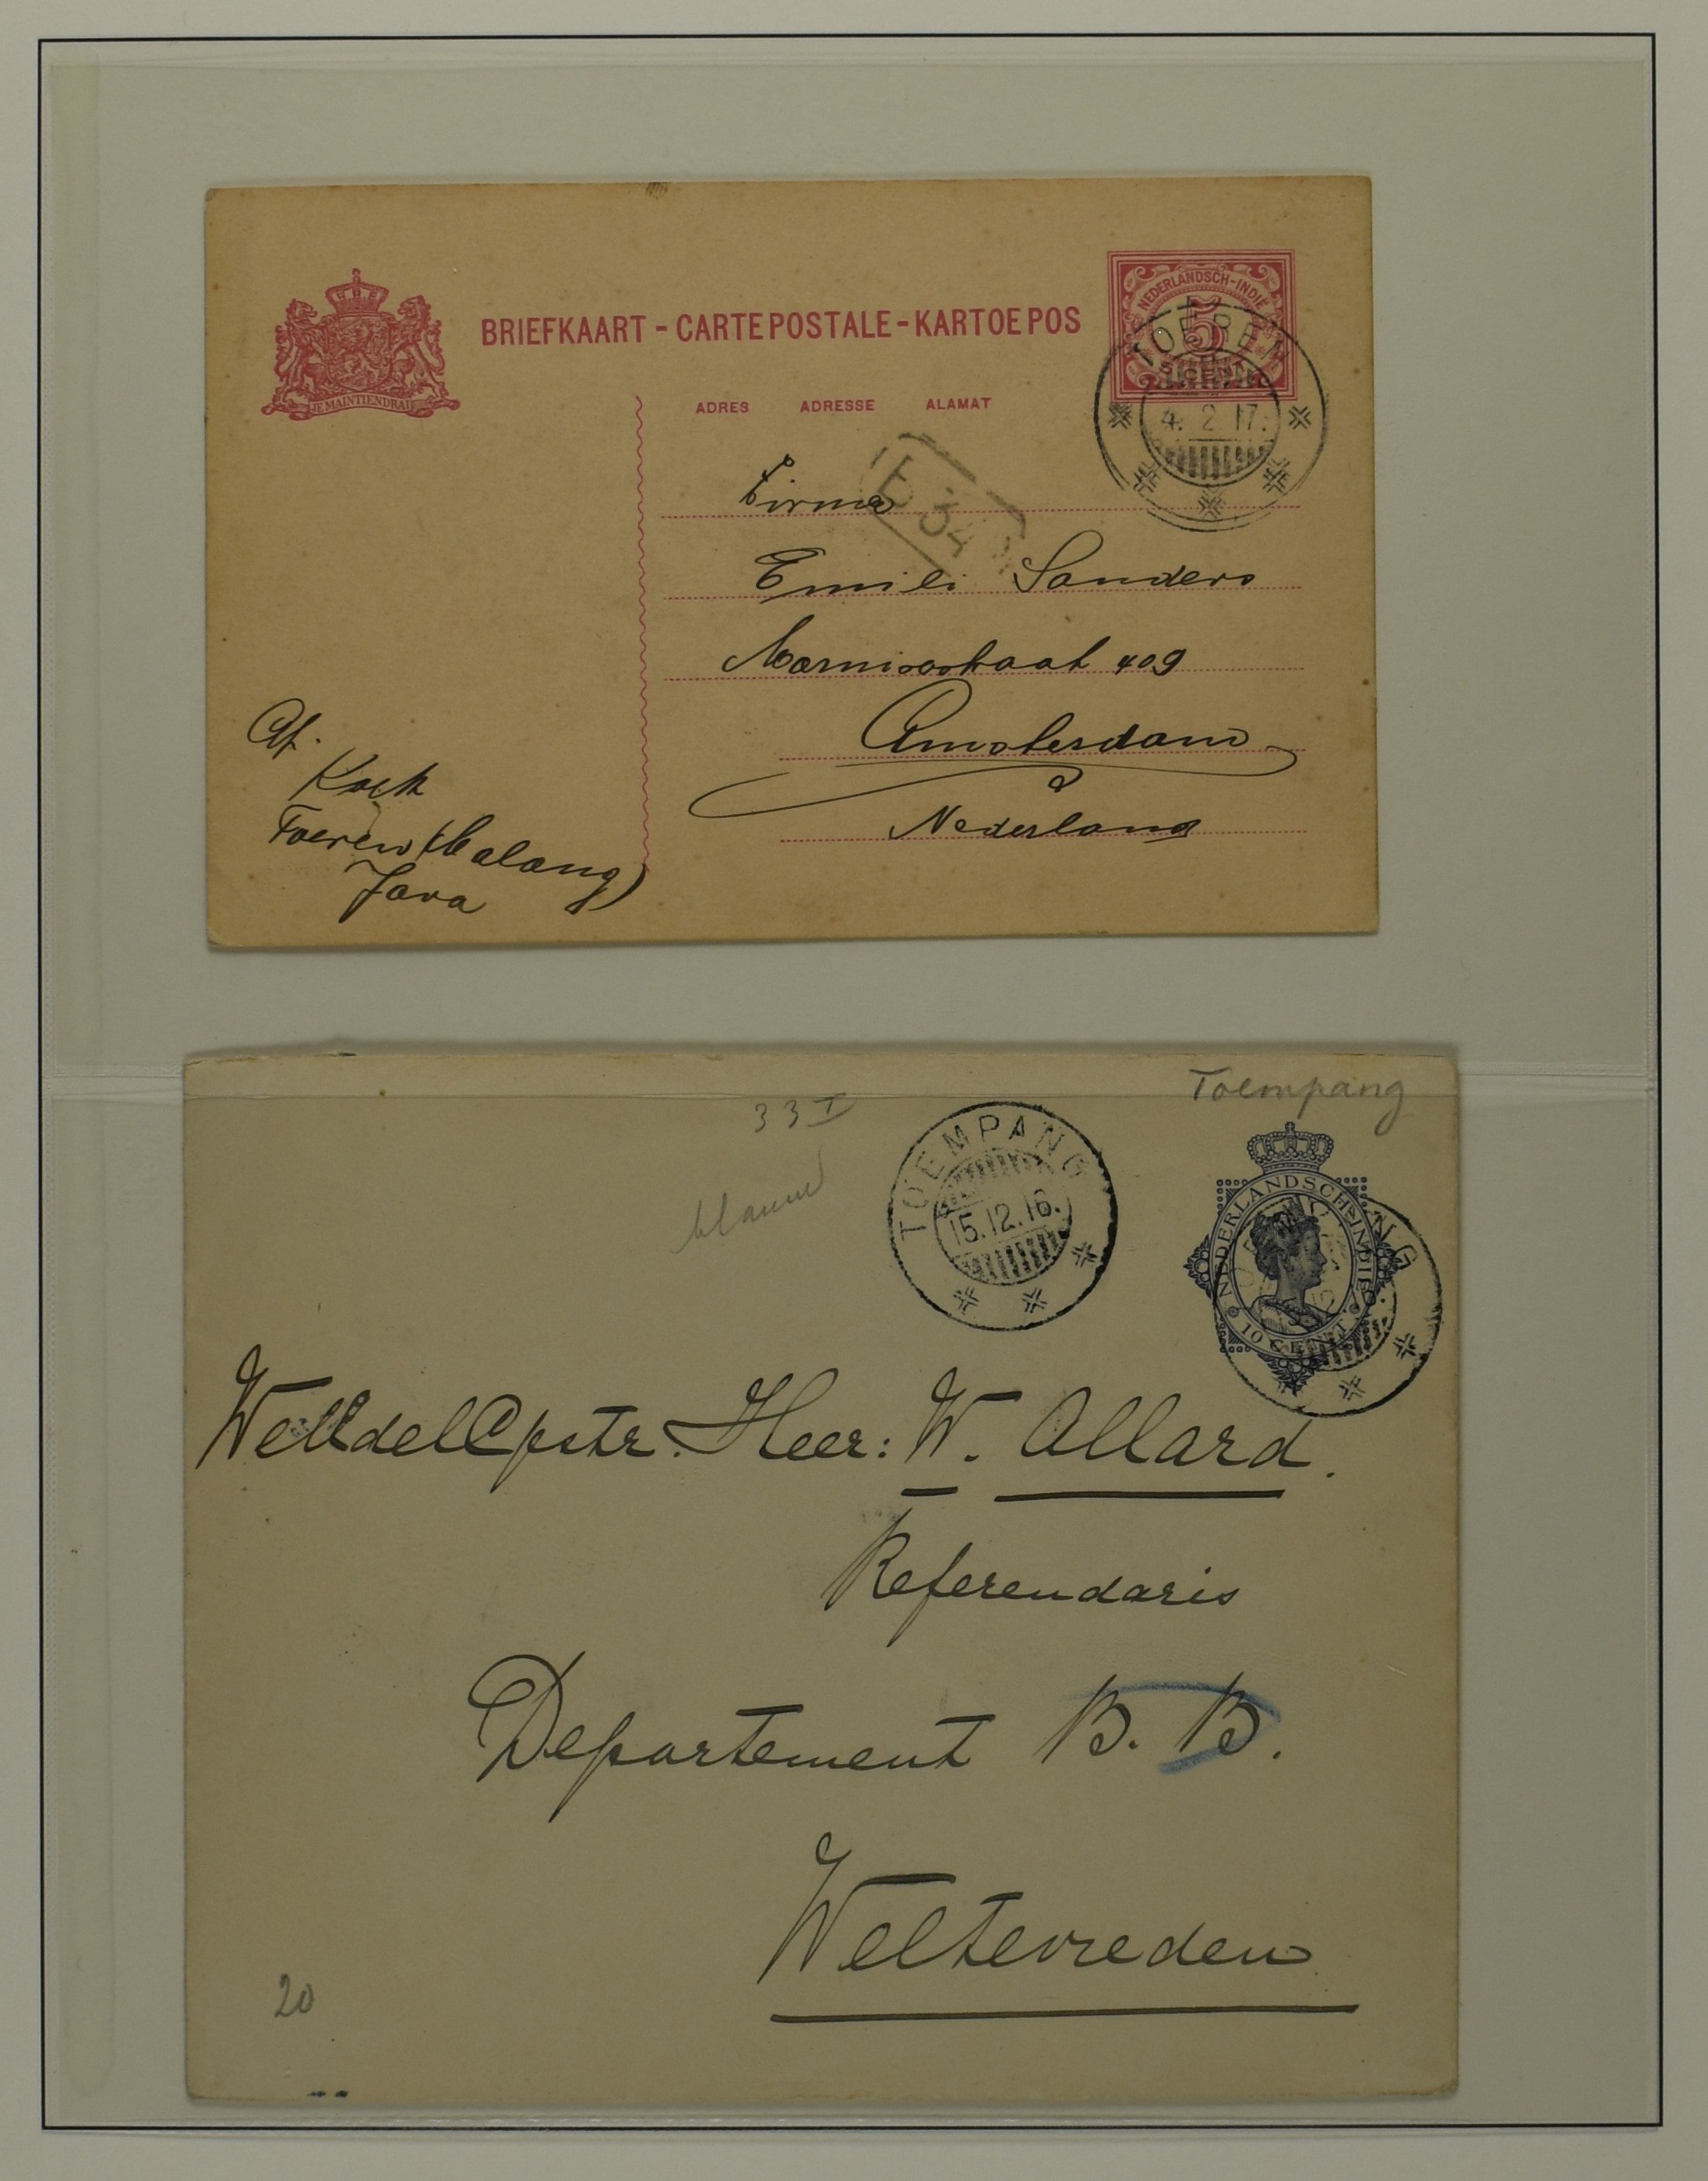 BRIEFKAART - CARTE POSTALE - KARTOE POS
NEDERLANDSCH-INDIË
5
JE MAINTIENDRAI
ADRES ADRESSE ALAMAT
TOEREN
4. 2 17.
34
Firma
Emili Sanders
Marnixstraat 409
Amsterdam
Nederland
Af.
Kock
Toeren (Malang)
Java
Toempang
33 I
blauw
TOEMPANG
15.12.16.
NEDERLANDSCH-INDIË
10 CENT
WelEdelGestr. Heer: W. Allard.
Referendaris
Departement B. B.
Weltevreden
20